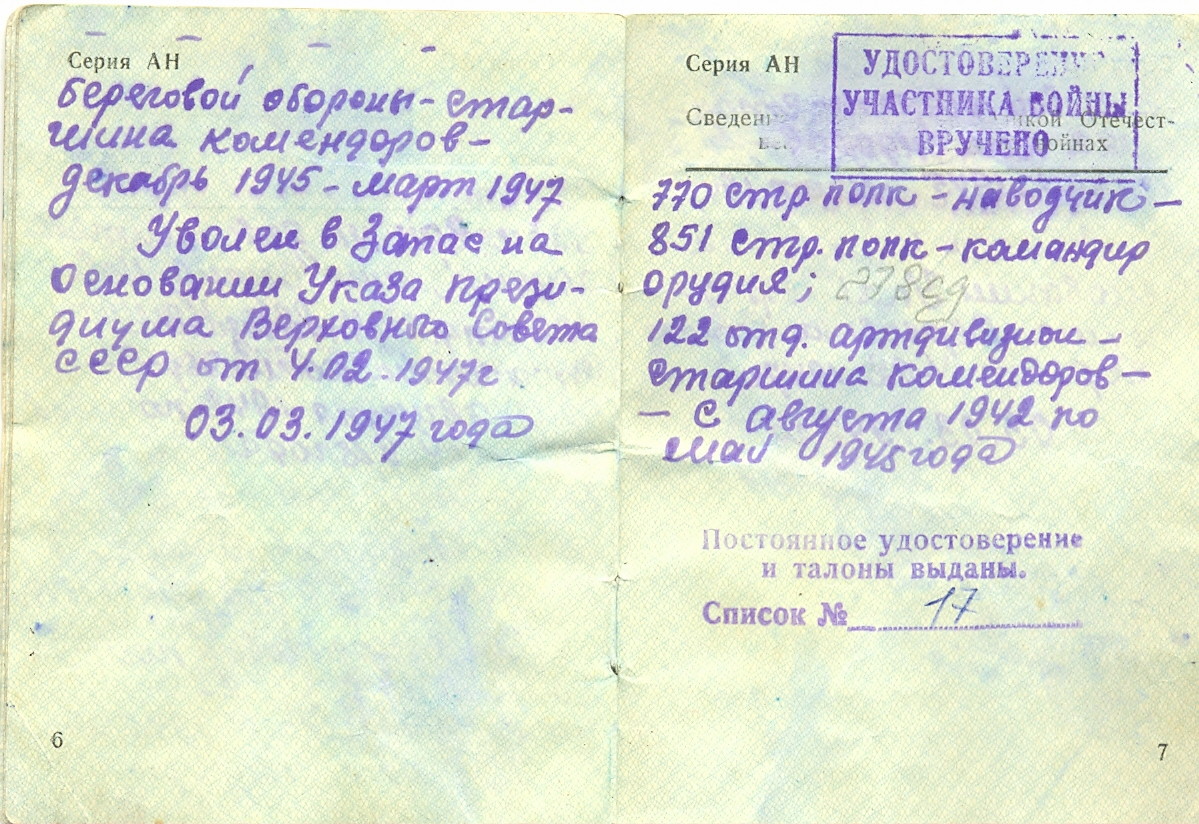 Серия АН
Береговой обороны - стар-
шина комендоров -
декабрь 1945 - март 1947
Уволен в Запас на
Основании Указа прези-
диума Верховного Совета
СССР от 4.02.1947г
03.03.1947 года
6
Серия АН
УДОСТОВЕРЕНИЕ
УЧАСТНИКА ВОЙНЫ
ВРУЧЕНО
Сведени икой Отечест-
ве войнах
770 стр. полк - наводчик -
851 стр. полк - командир
орудия; 278сд
122 отд. артдивизион -
старшина комендоров -
- С августа 1942 по
Май 1945 года
Постоянное удостоверение
и талоны выданы.
Список № 17
7